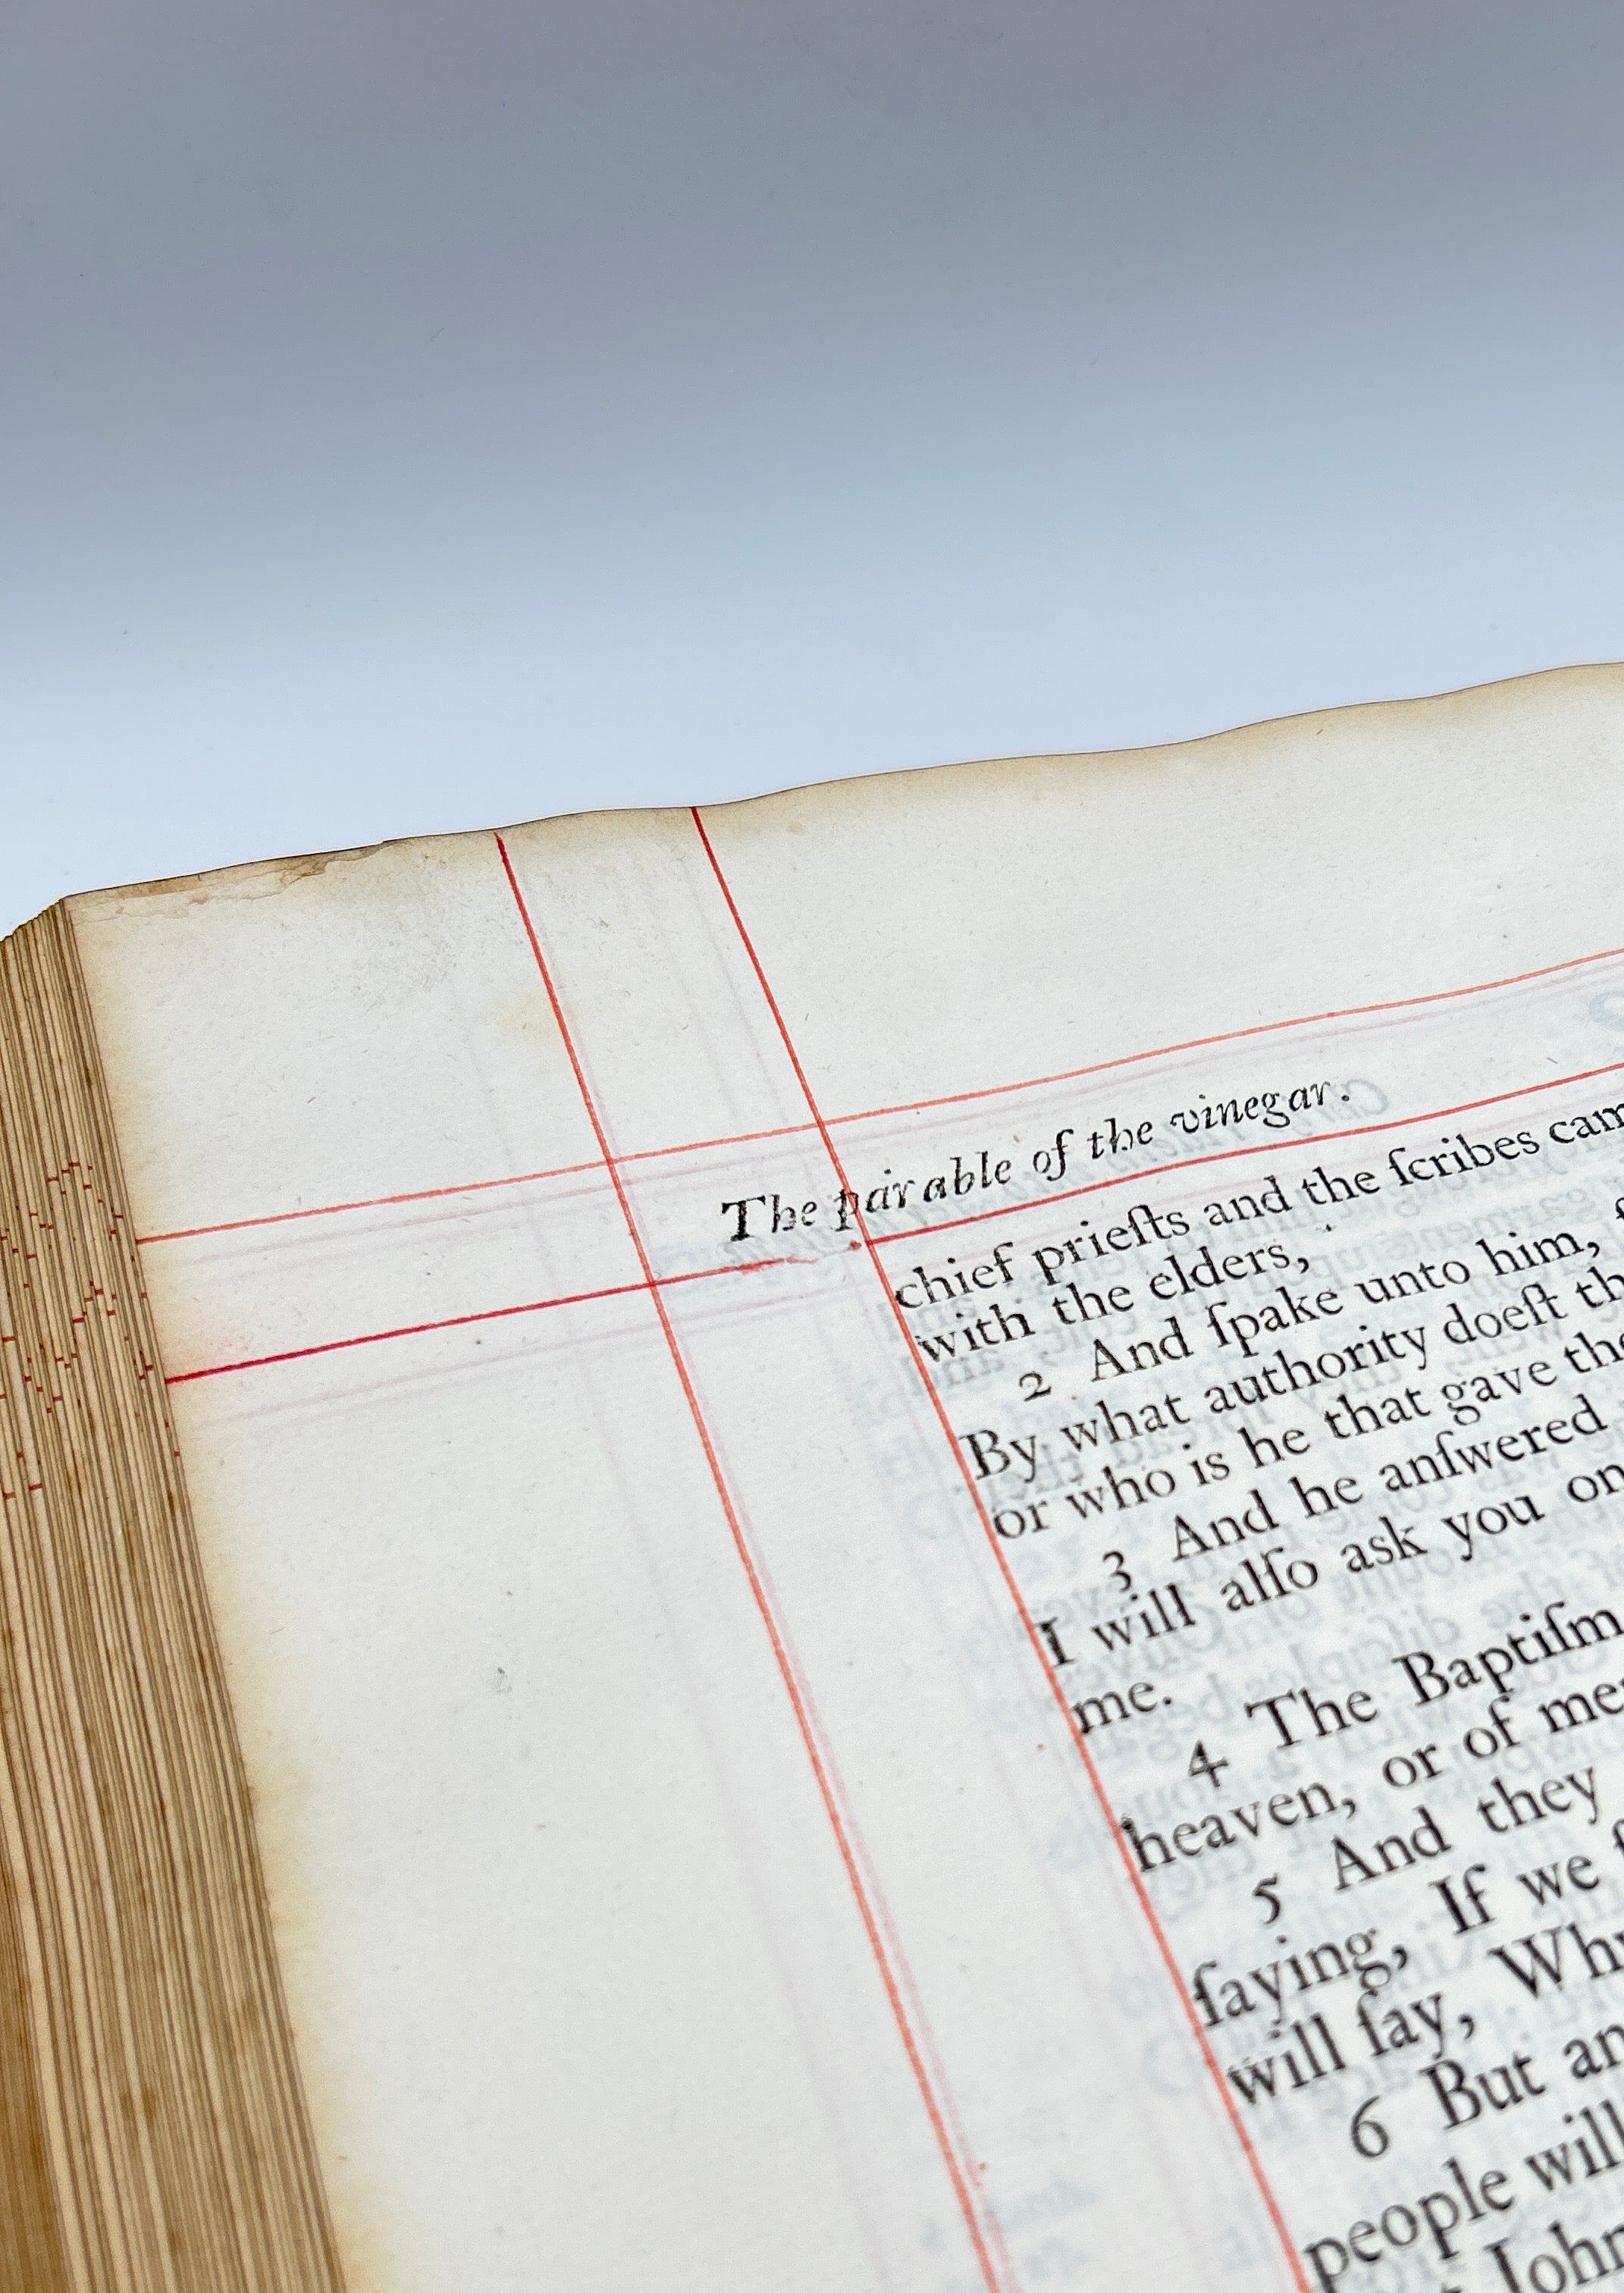 The parable of the vinegar.
chief prieſts and the ſcribes cam
with the elders,
2 And ſpake unto him,
By what authority doeſt th
or who is he that gave the
3 And he anſwered
I will alſo ask you on
me.
4 The Baptiſm
heaven, or of me
5 And they
ſaying, If we ſ
will ſay, Why
6 But an
people will
John